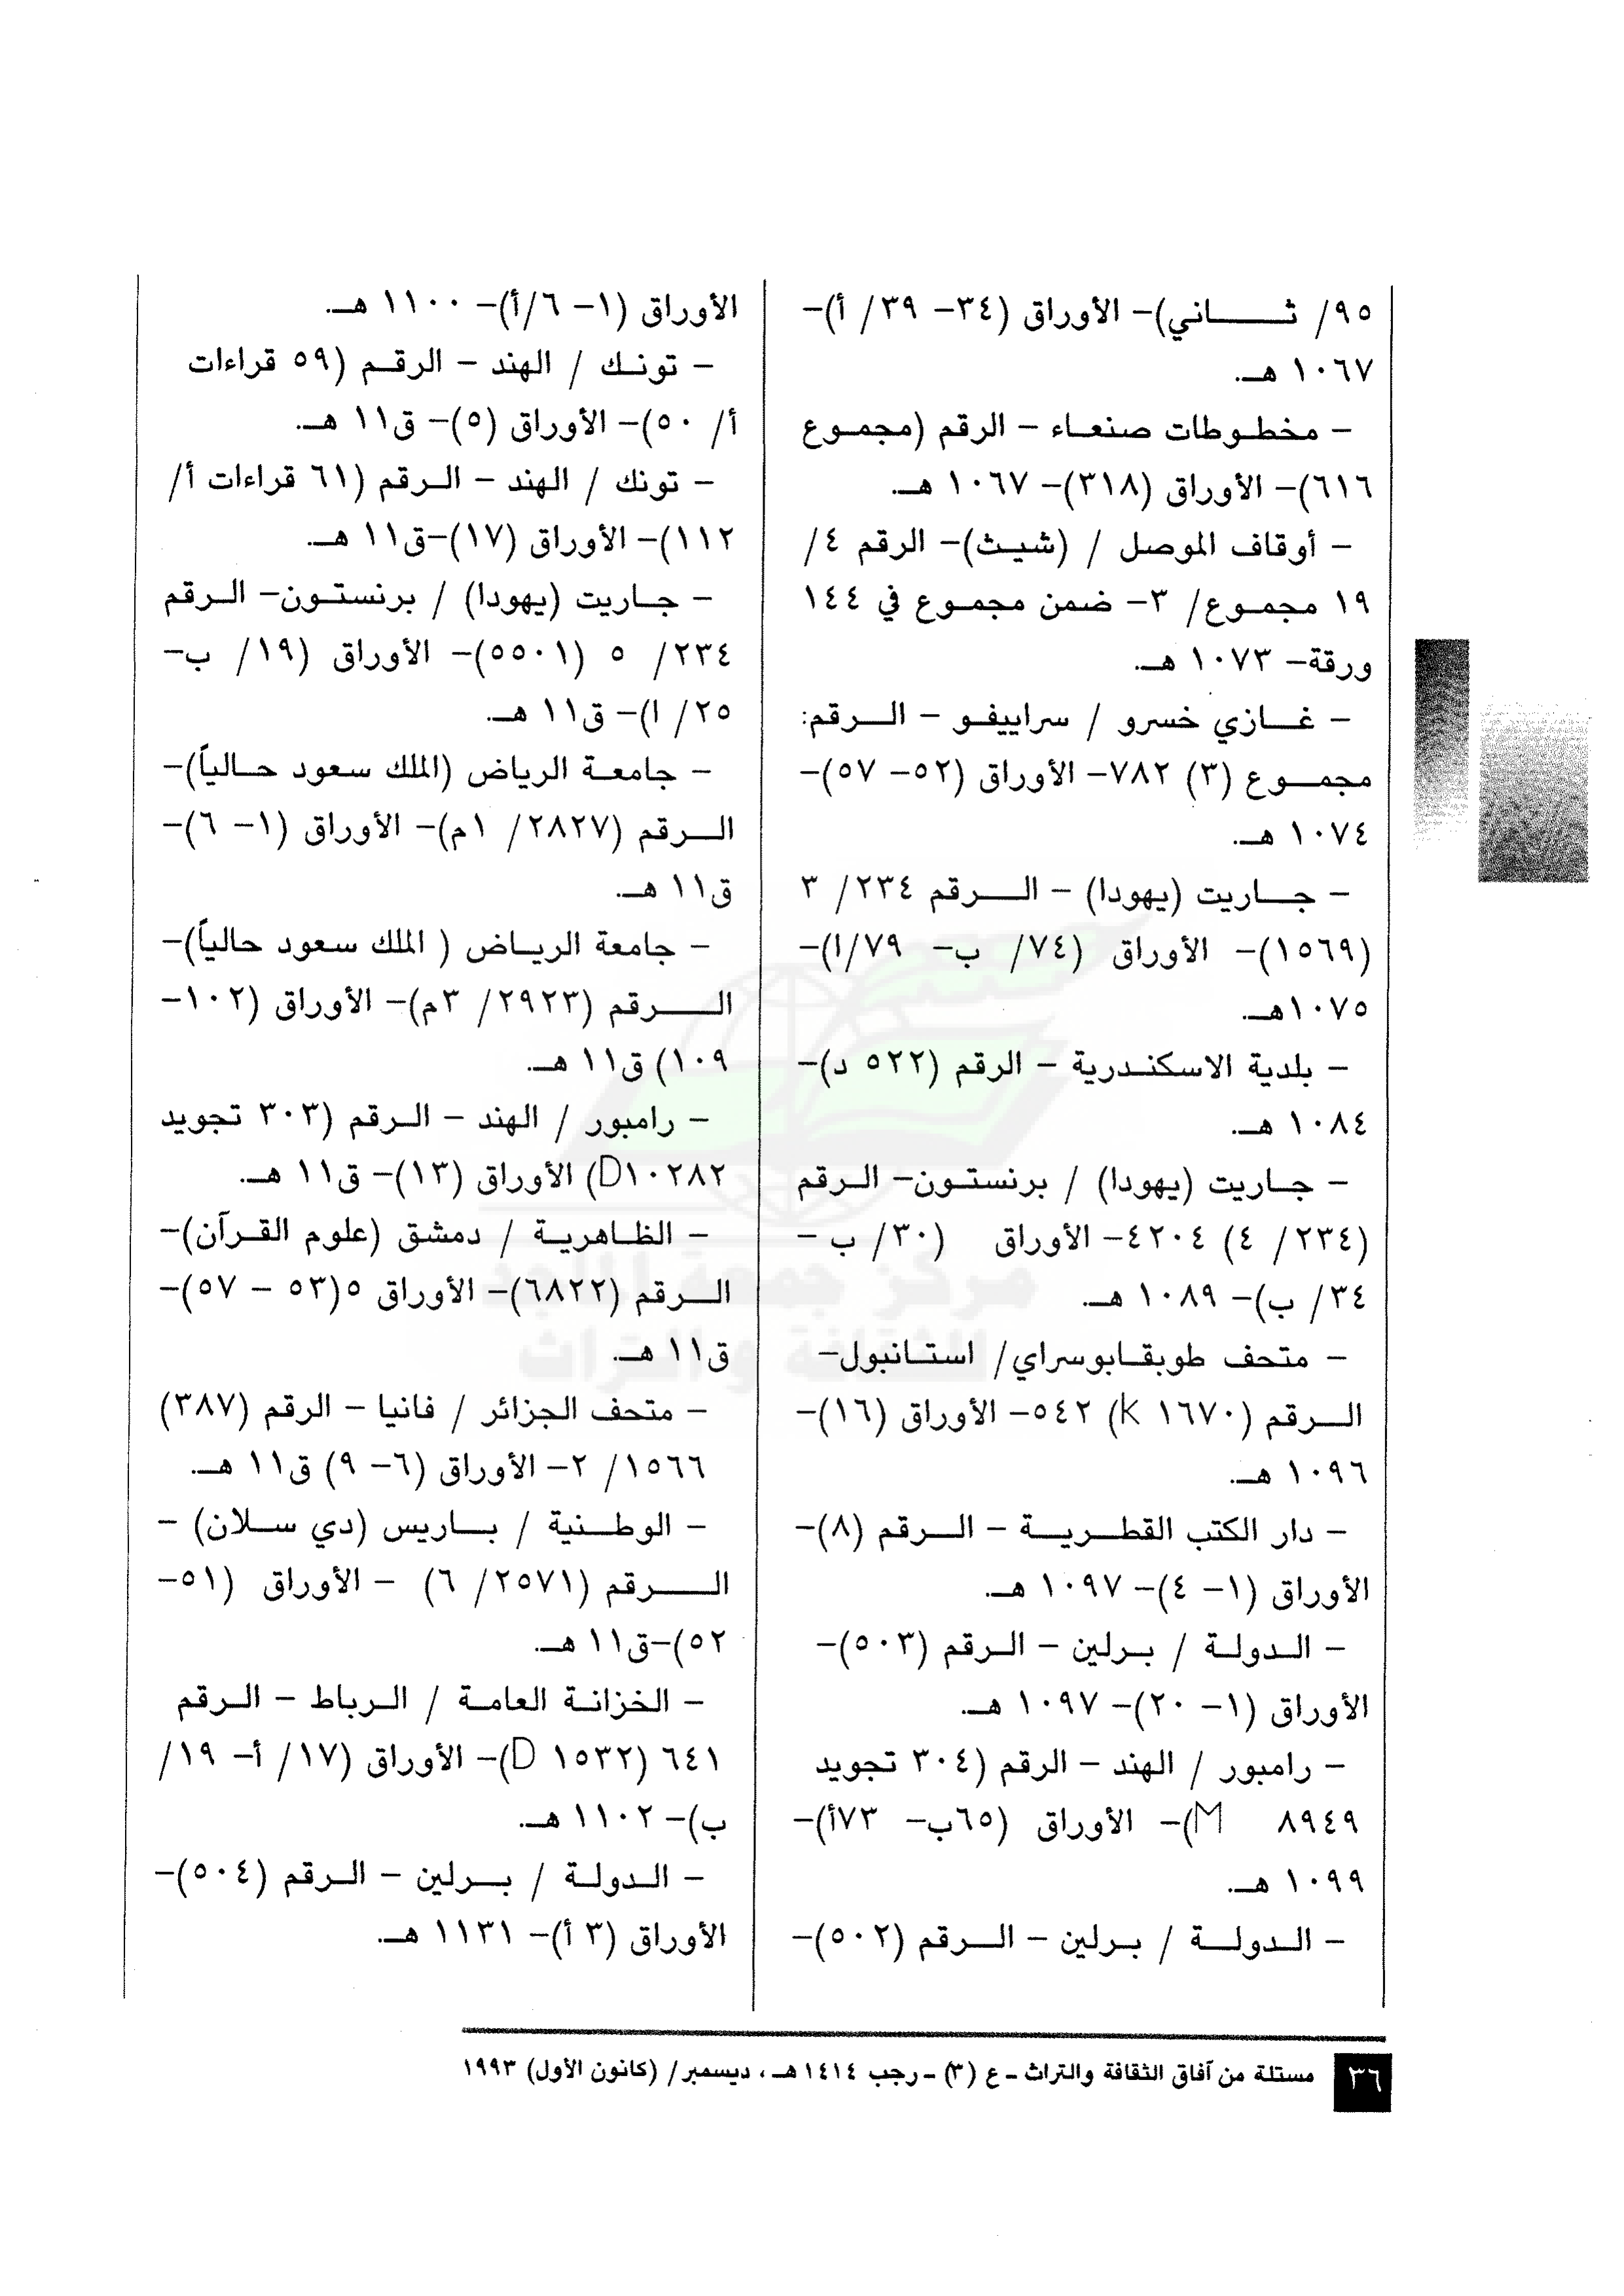 ٩٥/ ثاني)– الأوراق (٣٤– ٣٩/ أ)–
١٠٦٧ هـ.
– مخطوطات صنعاء – الرقم (مجموع
٦١٦)– الأوراق (٣١٨)– ١٠٦٧ هـ.
– أوقاف الموصل / (شيث)– الرقم ٤/
١٩ مجموع/ ٣– ضمن مجموع في ١٤٤
ورقة– ١٠٧٣ هـ.
– غازي خسرو / سراييفو – الرقم:
مجموع (٣) ٧٨٢– الأوراق (٥٢– ٥٧)–
١٠٧٤ هـ.
– جاريت (يهودا) – الرقم ٢٣٤/ ٣
(١٥٦٩)– الأوراق (٧٤/ ب– ٧٩/ا)–
١٠٧٥هـ.
– بلدية الاسكندرية – الرقم (٥٢٢ د)–
١٠٨٤ هـ.
– جاريت (يهودا) / برنستون– الرقم
(٢٣٤/ ٤) ٤٢٠٤– الأوراق (٣٠/ ب –
٣٤/ ب)– ١٠٨٩ هـ.
– متحف طوبقابوسراي/ استانبول–
الرقم (K ١٦٧٠) ٥٤٢– الأوراق (١٦)–
١٠٩٦ هـ.
– دار الكتب القطرية – الرقم (٨)–
الأوراق (١– ٤)– ١٠٩٧ هـ.
– الدولة / برلين – الرقم (٥٠٣)–
الأوراق (١– ٢٠)– ١٠٩٧ هـ.
– رامبور / الهند – الرقم (٣٠٤ تجويد
٨٩٤٩ M)– الأوراق (٦٥ب– ٧٣أ)–
١٠٩٩ هـ.
– الدولة / برلين – الرقم (٥٠٢)–
الأوراق (١– ٦/أ)– ١١٠٠ هـ.
– تونك / الهند – الرقم (٥٩ قراءات
أ/ ٥٠)– الأوراق (٥)– ق١١ هـ.
– تونك / الهند – الرقم (٦١ قراءات أ/
١١٢)– الأوراق (١٧)–ق١١ هـ.
– جاريت (يهودا) / برنستون– الرقم
٢٣٤/ ٥ (٥٥٠١)– الأوراق (١٩/ ب–
٢٥/ ا)– ق١١ هـ.
– جامعة الرياض (الملك سعود حالياً)–
الرقم (٢٨٢٧/ ١م)– الأوراق (١– ٦)–
ق١١ هـ.
– جامعة الرياض ( الملك سعود حالياً)–
الرقم (٢٩٢٣/ ٣م)– الأوراق (١٠٢–
١٠٩) ق١١ هـ.
– رامبور / الهند – الرقم (٣٠٣ تجويد
D١٠٢٨٢) الأوراق (١٣)– ق١١ هـ.
– الظاهرية / دمشق (علوم القرآن)–
الرقم (٦٨٢٢)– الأوراق ٥(٥٣ – ٥٧)–
ق١١ هـ.
– متحف الجزائر / فانيا – الرقم (٣٨٧)
١٥٦٦/ ٢– الأوراق (٦– ٩) ق١١ هـ.
– الوطنية / باريس (دي سلان) –
الرقم (٢٥٧١/ ٦) – الأوراق (٥١–
٥٢)–ق١١ هـ.
– الخزانة العامة / الرباط – الرقم
٦٤١ (D ١٥٣٢)– الأوراق (١٧/ أ– ١٩/
ب)– ١١٠٢ هـ.
– الدولة / برلين – الرقم (٥٠٤)–
الأوراق (٣ أ)– ١١٣١ هـ.
٣٦ مستلة من آفاق الثقافة والتراث ـ ع (٣) ـ رجب ١٤١٤ هـ، ديسمبر/ (كانون الأول) ١٩٩٣
مركز جمعة الماجد
للثقافة والتراث